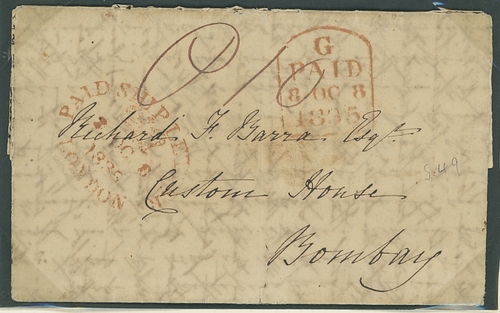 G
PAID
8 OC 8
1835
PAID SHIP LET
1835
LONDON
Richard F. Barra Esqr.
Custom House
Bombay